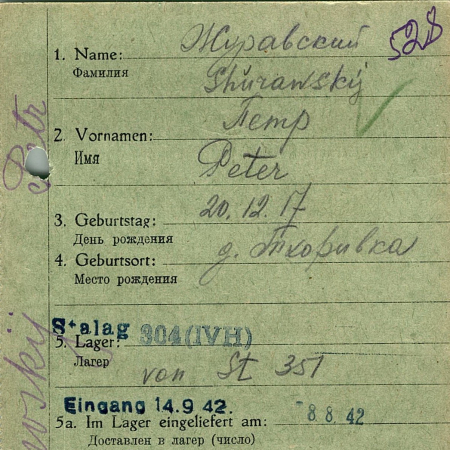 Журавский
528
1. Name:
Фамилия
Shurawskij
Петр
2. Vornamen:
Имя
Peter
Petr
3. Geburtstag: 20.12.17
День рождения
4. Geburtsort: д. Тхоривка
Место рождения
Stalag 304 (IVH)
5. Lager:
Лагерь
von St 351
Eingang 14.9 42.
5a. Im Lager eingeliefert am: -8.8.42
Доставлен в лагерь (число)